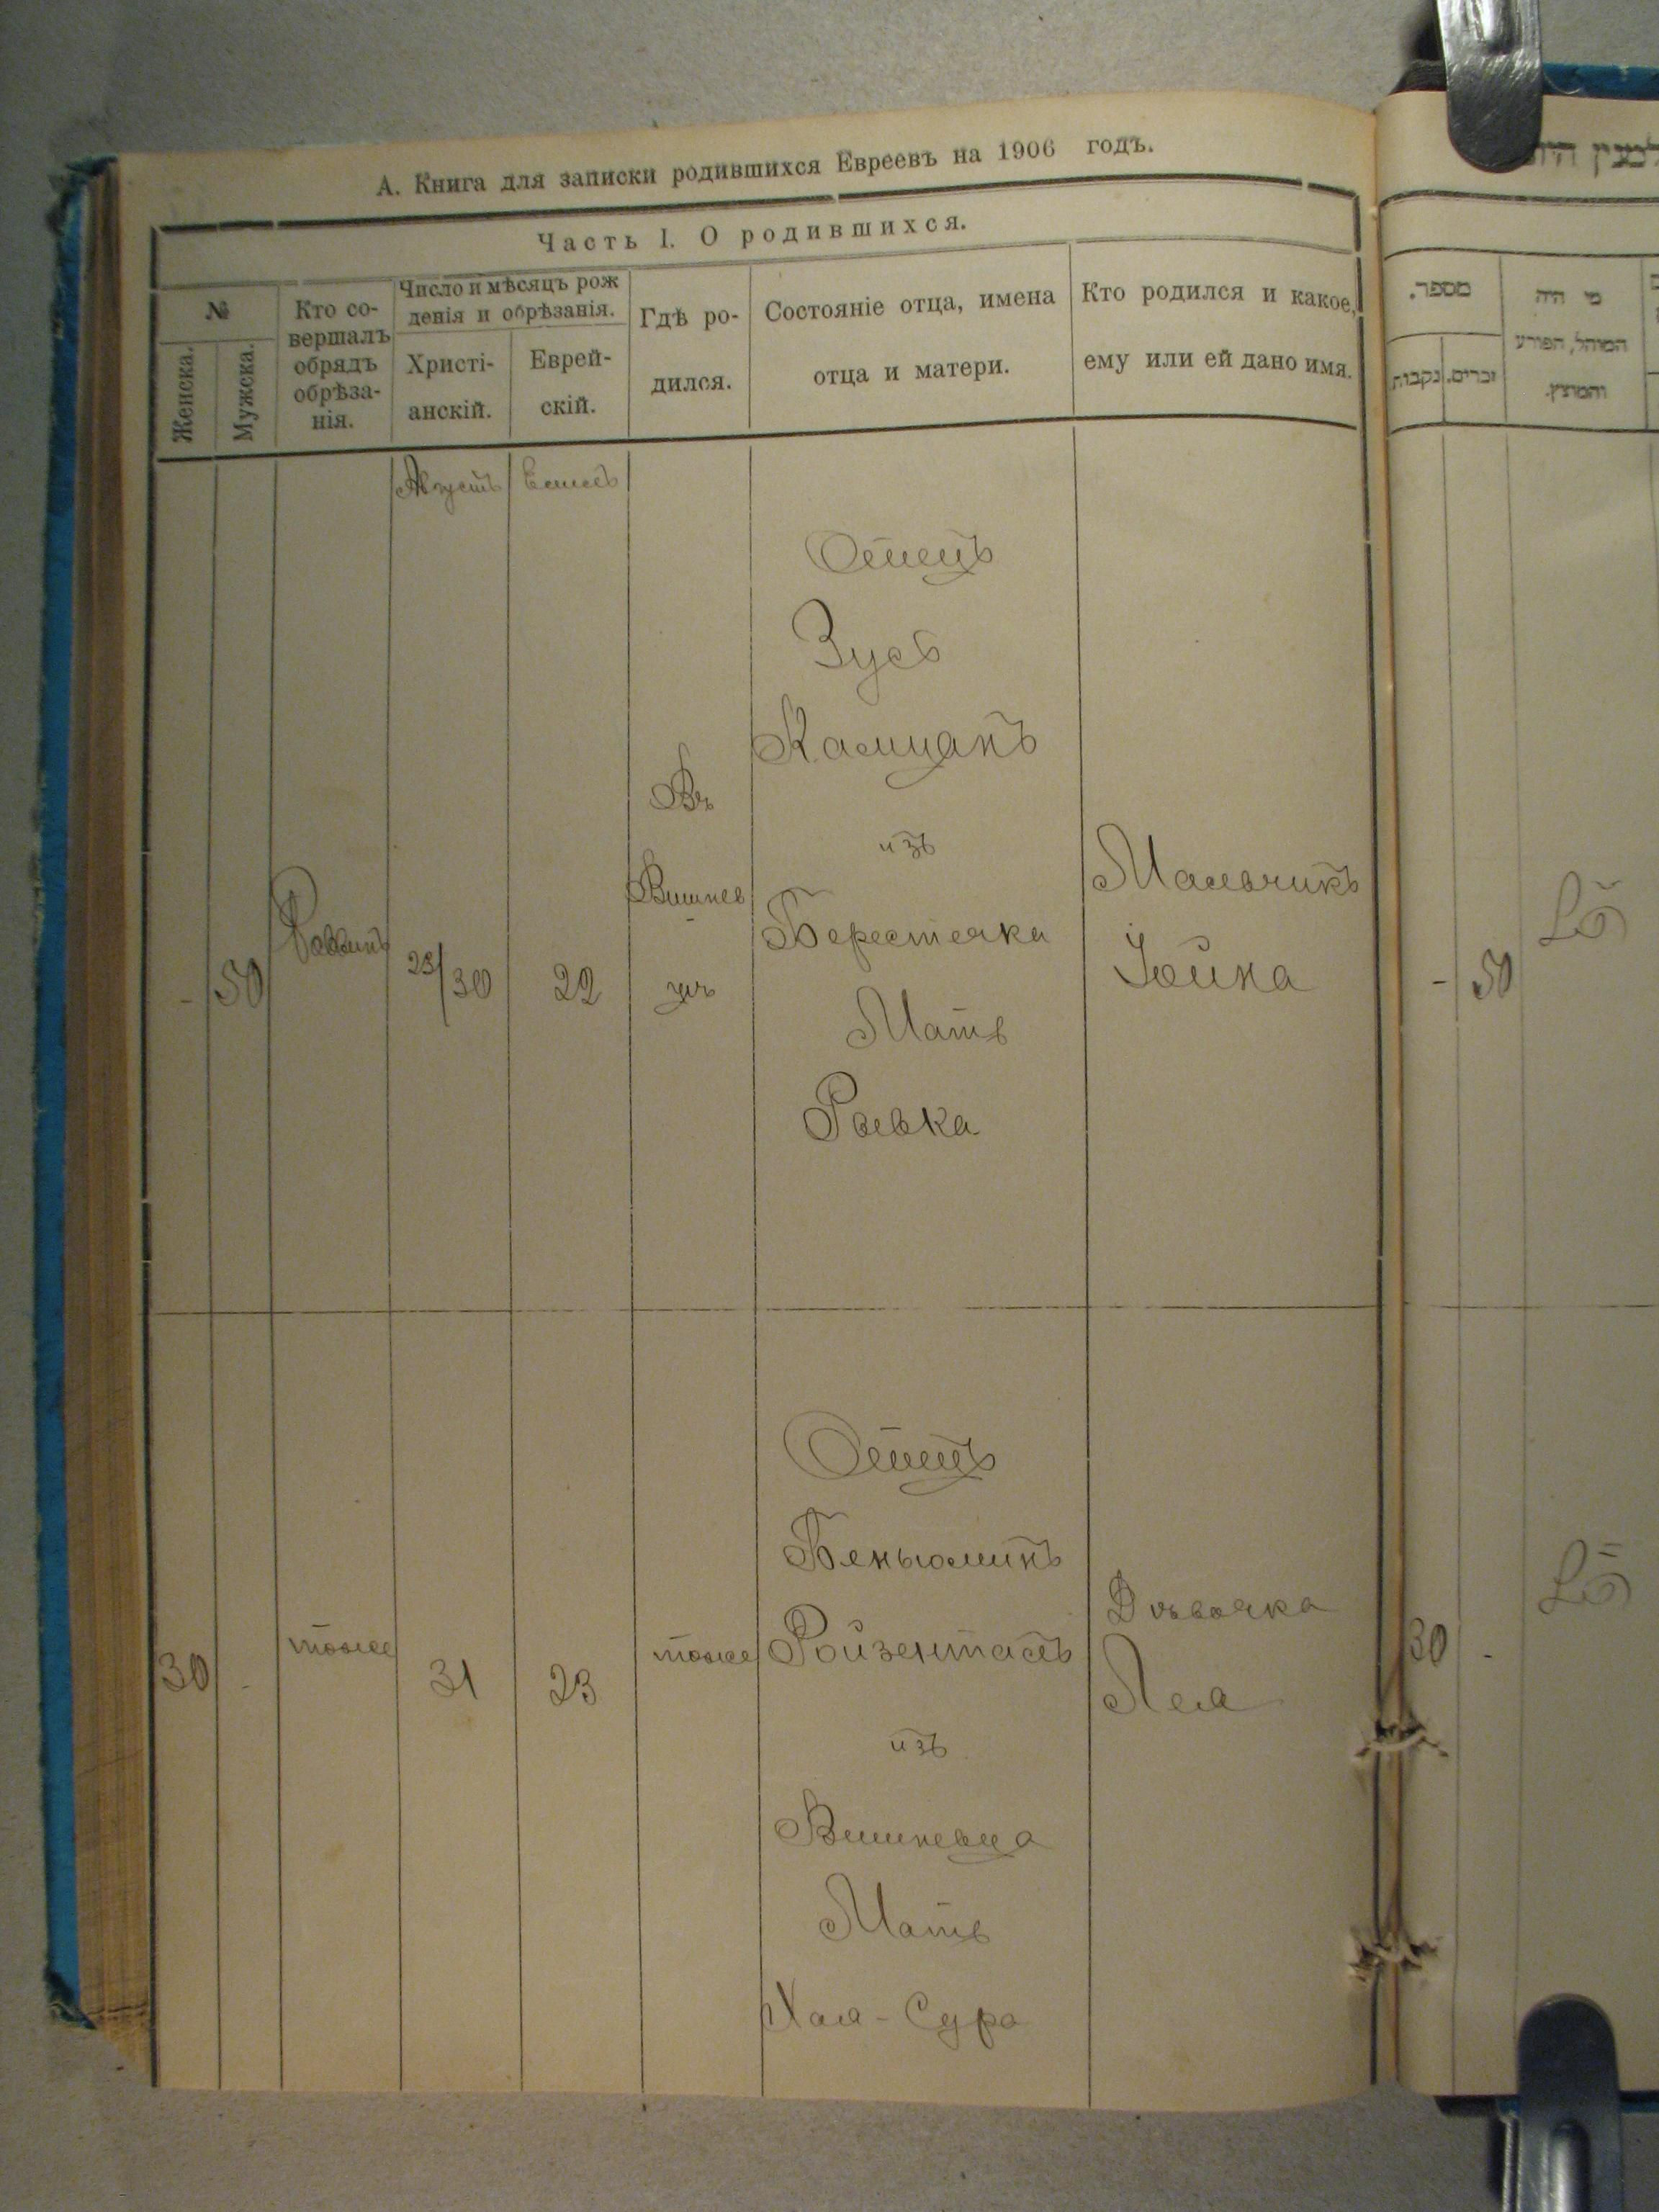 А. Книга для записки родившихся Евреевъ на 1906 годъ.
Часть I. О родившихся.
№
Женска.
Мужска.
Кто со-
вершалъ
обрядъ
обрѣза-
нія.
Число и мѣсяцъ рож
денія и обрѣзанія.
Христі-
анскій.
Еврей-
скій.
Гдѣ ро-
дился.
Состояніе отца, имена
отца и матери.
Кто родился и какое,
ему или ей дано имя.
Августъ
-
50
Раввинъ
23/30
22
Въ
Вишнев
-
цѣ
Отецъ
Зусь
Калицанъ
изъ
Берестечка
Мать
Рывка
Мальчикъ
Іойна
30
-
тоже
31
23
тоже
Отецъ
Беньюминъ
Ройзенталь
изъ
Вишневца
Мать
Хая-Сура
Дѣвочка
Лея
מספר.
נקבות
זכרים.
מי היה
המוהל, הפורע
והמוצץ.
-
50
30
-